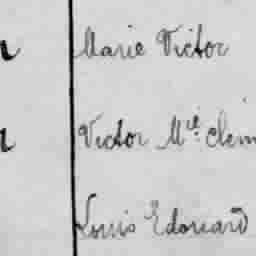 Marie Victor
Victor Mie. Clém
Louis Edouard